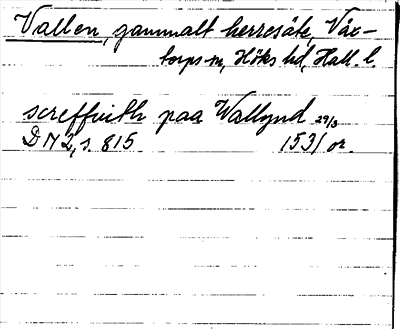 Vallen, gammalt herresäte, Våx-
torps sn, Höks hd, Hall. l.
screffuith paa Wallynd 29/3
DN 2, s. 815 1531 or.